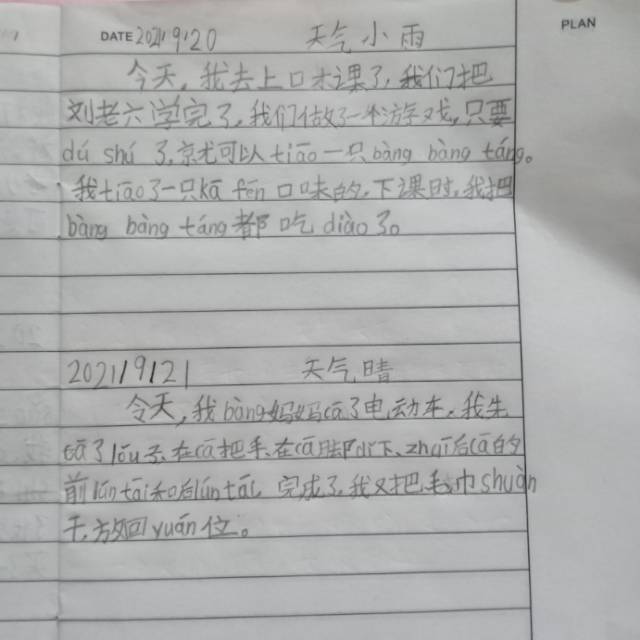 DATE 2021/9/20 天气,小雨
PLAN
今天,我去上口才课了,我们把
刘老六学完了,我们做了一个游戏,只要
dú shú 了,京尤可以tiāo一只bàng bàng táng。
我tiāo了一只kā fēi口味的,下课时,我把
bàng bàng táng都吃diào了。
2021/9/21 天气,晴
今天,我bāng妈妈cā了电动车,我先
cā了 在cā把手,在cā脚 下、zhāi后cā的
前lún tāi和后lún tāi,完成了,我又把毛巾shuàn
干,放回yuán位。